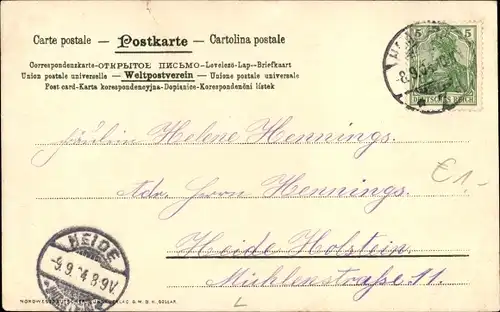 Carte postale – Postkarte – Cartolina postale
Correspondenzkarte–ОТКРЫТОЕ ПИСЬМО–Levelező-Lap–Briefkaart
Union postale universelle – Weltpostverein – Unione postale universale
Post card–Karta korespondencyjna–Dopisnice–Korespondenční lístek
5 5
DEUTSCHES REICH
-8.9.
Fräulein Helene Hennings.
Adr. Herrn Hennings.
€ 1,-
Heide Holstein.
Mühlenstraße 11.
HEIDE
-9.9.04 8-9V.
G.M.B.H. GOLLAR.